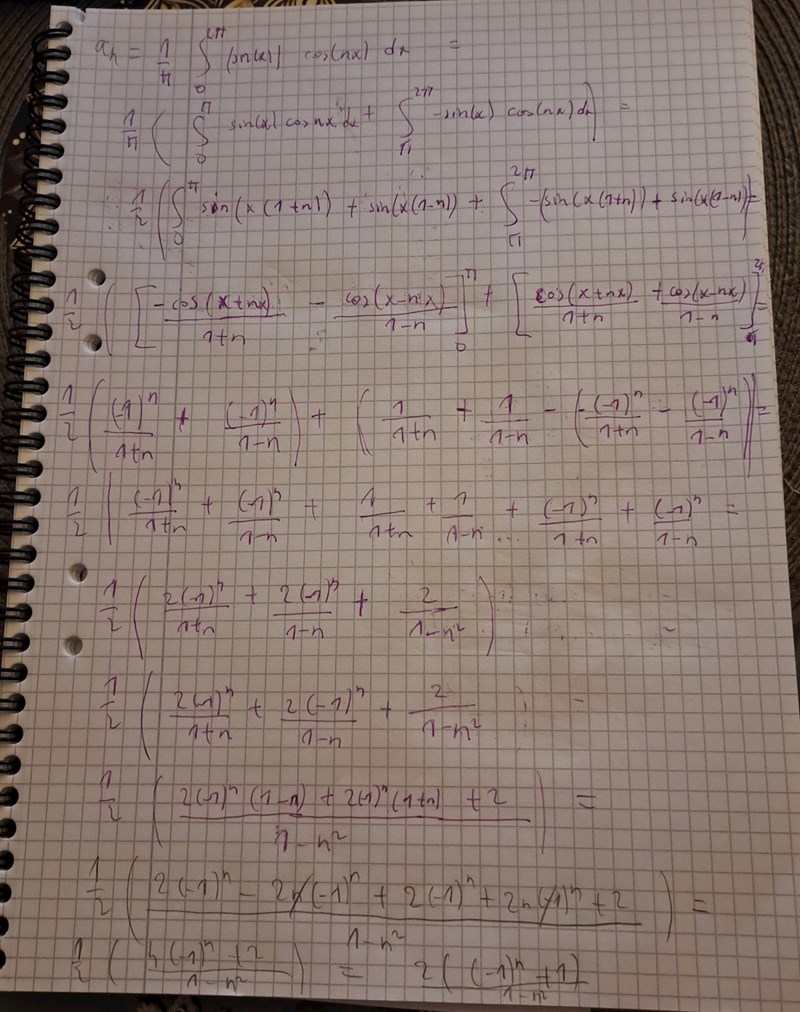 aₙ = 1/π ∫₀^{2π} |sin(x)| cos(nx) dx =
1/π ( ∫₀^π sin(x) cos nx dx + ∫_π^{2π} -sin(x) cos(nx) dx ) =
1/2 ( ∫₀^π sin(x(1+n)) + sin(x(1-n)) + ∫_π^{2π} -(sin(x(1+n)) + sin(x(1-n)) =
1/2 ( [ -cos(x+nx)/(1+n) - cos(x-nx)/(1-n) ]₀^π + [ cos(x+nx)/(1+n) + cos(x-nx)/(1-n) ]_π^{2π} =
1/2 ( (-1)ⁿ/(1+n) + (-1)ⁿ/(1-n) ) + ( 1/(1+n) + 1/(1-n) - ( -(-1)ⁿ/(1+n) - (-1)ⁿ/(1-n) ) ) =
1/2 ( (-1)ⁿ/(1+n) + (-1)ⁿ/(1-n) + 1/(1+n) + 1/(1-n) + (-1)ⁿ/(1+n) + (-1)ⁿ/(1-n) =
1/2 ( 2(-1)ⁿ/(1+n) + 2(-1)ⁿ/(1-n) + 2/(1-n²) )
1/2 ( 2(-1)ⁿ/(1+n) + 2(-1)ⁿ/(1-n) + 2/(1-n²) =
1/2 ( (2(-1)ⁿ (1-n) + 2(-1)ⁿ (1+n) + 2)/(1-n²) ) =
1/2 ( (2(-1)ⁿ - 2n(-1)ⁿ + 2(-1)ⁿ + 2n(-1)ⁿ + 2)/(1-n²) ) =
1/2 ( (4(-1)ⁿ + 2)/(1-n²) ) = 2((-1)ⁿ + 1)/(1-n²)